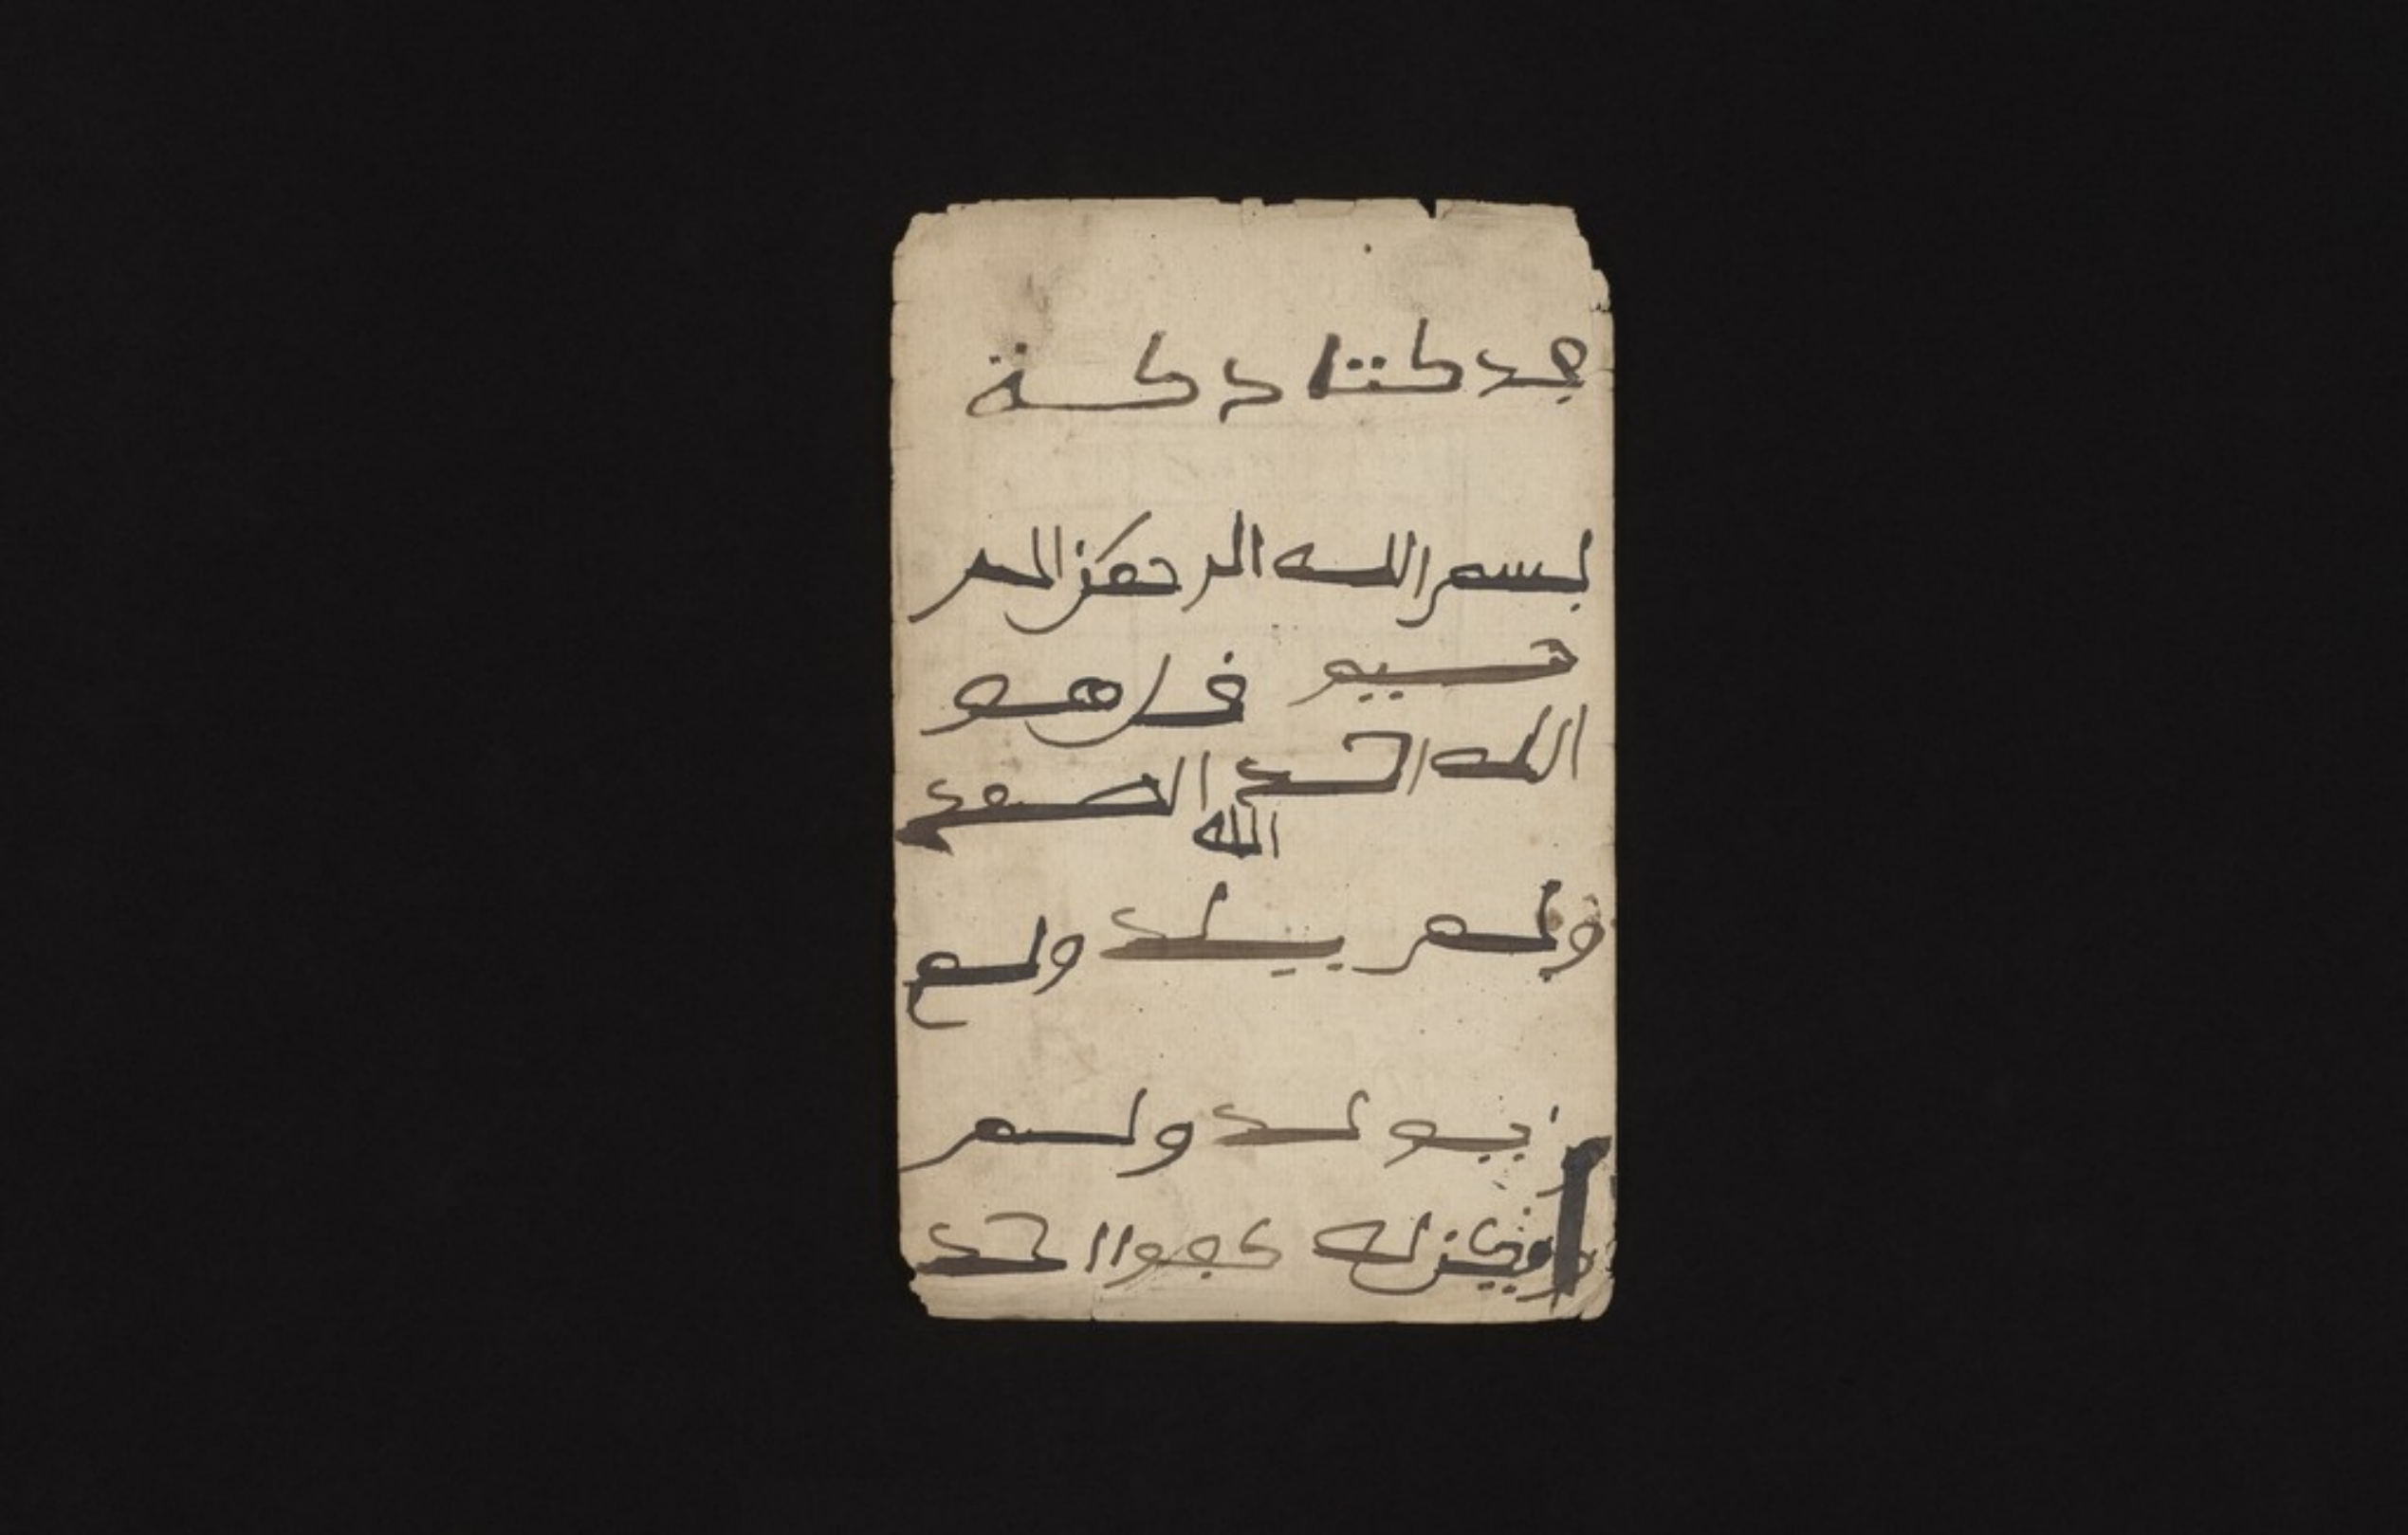 بسم الله الرحمن الر
حيم قل هو
الله احد الله الصمد
ولم يلد ولم
يولد ولم
يكن له كفوا احد